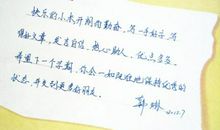 快乐的小米开朗而勤奋，写一手好字，写
得好文章，是言自信，热心助人，优点多多
希望下一个学期，你会一如既往地保持优秀的
状态，开克到更多好朋友。
2012.7